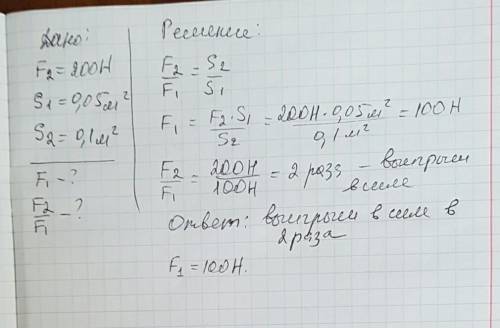 Дано:
F₂ = 200Н
S₁ = 0,05м²
S₂ = 0,1м²
F₁ - ?
F₂/F₁ - ?
Решение:
F₂/F₁ = S₂/S₁
F₁ = F₂·S₁/S₂ = 200Н·0,05м²/0,1м² = 100Н
F₂/F₁ = 200Н/100Н = 2 раза – выигрыш
в силе
Ответ: выигрыш в силе в
2 раза
F₁ = 100Н.